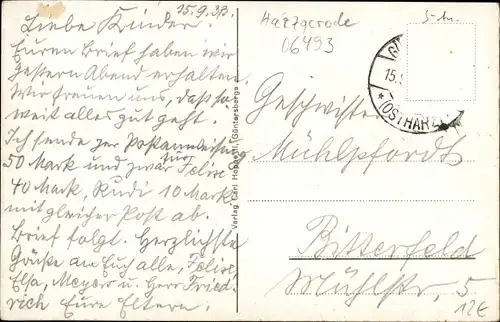 15.9.33.
Liebe Kinder!
Euren Brief haben wir
gestern Abend erhalten.
Wir freuen uns, daß so
weit alles gut geht.
Ich sende per Postanweisung
50 Mark und zwar für Felix
40 Mark, Rudi 10 Mark
mit gleicher Post ab.
Brief folgt. Herzlichste
Grüße an Euch alle, Felix,
Elsa, Meyers u. Herr Fried
rich Eure Eltern.
Verlag Carl Güntersberge
Harzgerode
06493
5-
15.
* (OSTHARZ)
Geschwister
Mühlpfordt
Bitterfeld
Mühlstr, 5
12€